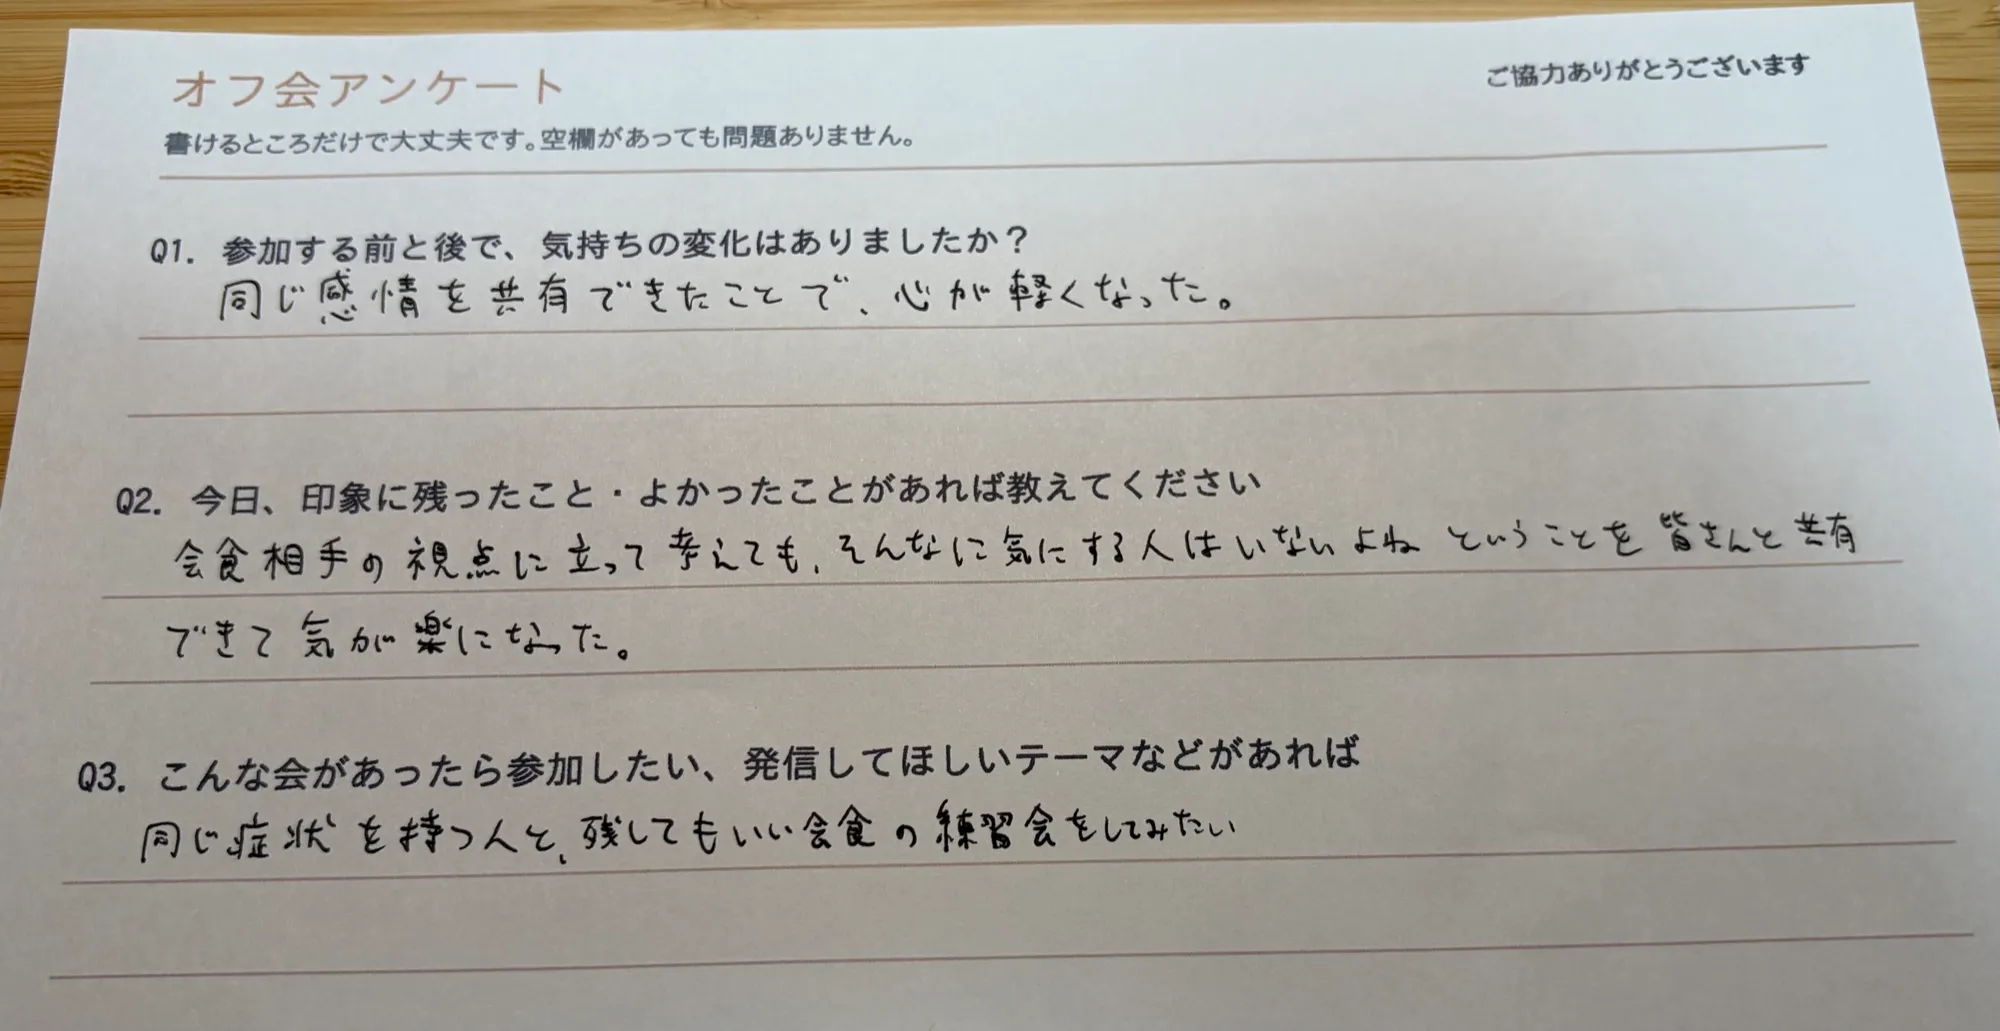 オフ会アンケート
ご協力ありがとうございます
書けるところだけで大丈夫です。空欄があっても問題ありません。
Q1. 参加する前と後で、気持ちの変化はありましたか？
同じ感情を共有できたことで、心が軽くなった。
Q2. 今日、印象に残ったこと・よかったことがあれば教えてください
会食相手の視点に立って考えても、そんなに気にする人はいないよね ということを皆さんと共有
できて気が楽になった。
Q3. こんな会があったら参加したい、発信してほしいテーマなどがあれば
同じ症状を持つ人と、残してもいい会食の練習会をしてみたい